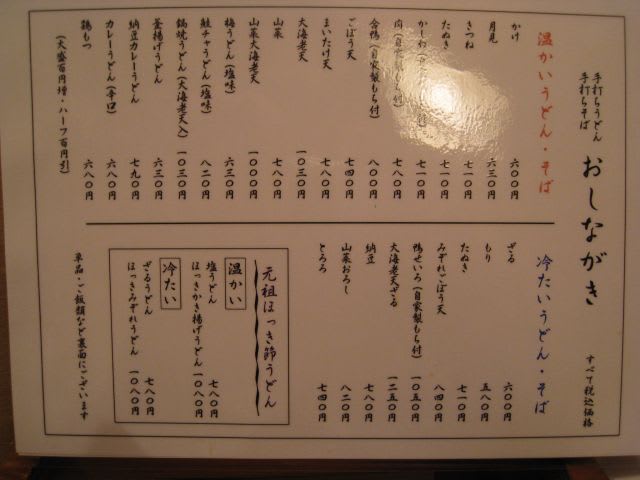 手打ちうどん
手打ちそば
おしながき
すべて税込価格
温かいうどん・そば
かけ 六〇〇円
月見 六三〇円
きつね 七一〇円
たぬき 七一〇円
かしわ 七一〇円
肉(自家製もち付) 七八〇円
合鴨(自家製もち付) 八〇〇円
ごぼう天 七四〇円
まいたけ天 七八〇円
大海老天 一〇三〇円
山菜 七八〇円
山菜大海老天 一〇〇〇円
梅うどん(塩味) 六三〇円
鮭チャうどん(塩味) 八二〇円
鍋焼うどん(大海老天入) 一〇三〇円
釜揚げうどん 六三〇円
納豆カレーうどん 七九〇円
カレーうどん(辛口) 六八〇円
鶏もつ 六八〇円
(大盛百円増・ハーフ百円引)
冷たいうどん・そば
ざる 六〇〇円
もり 五八〇円
たぬき 七一〇円
みぞれごぼう天 八四〇円
鴨せいろ(自家製もち付) 一〇五〇円
大海老天ざる 一二五〇円
納豆 七八〇円
山菜おろし 八二〇円
とろろ 七四〇円
元祖ほっき節うどん
温かい
塩うどん 七八〇円
ほっきかき揚げうどん 一〇八〇円
冷たい
ざるうどん 七八〇円
ほっきみぞれうどん 一〇八〇円
単品・ご飯類など裏面にございます